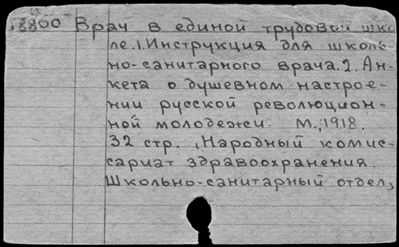 18800 Врач в единой трудовой шко
ле. 1. Инструкция для школь
но-санитарного врача. 2. Ан-
кета о душевном настрое-
нии русской революцион-
ной молодежи. М., 1918.
32 стр., Народный комис-
сариат здравоохранения.
Школьно-санитарный отдел,